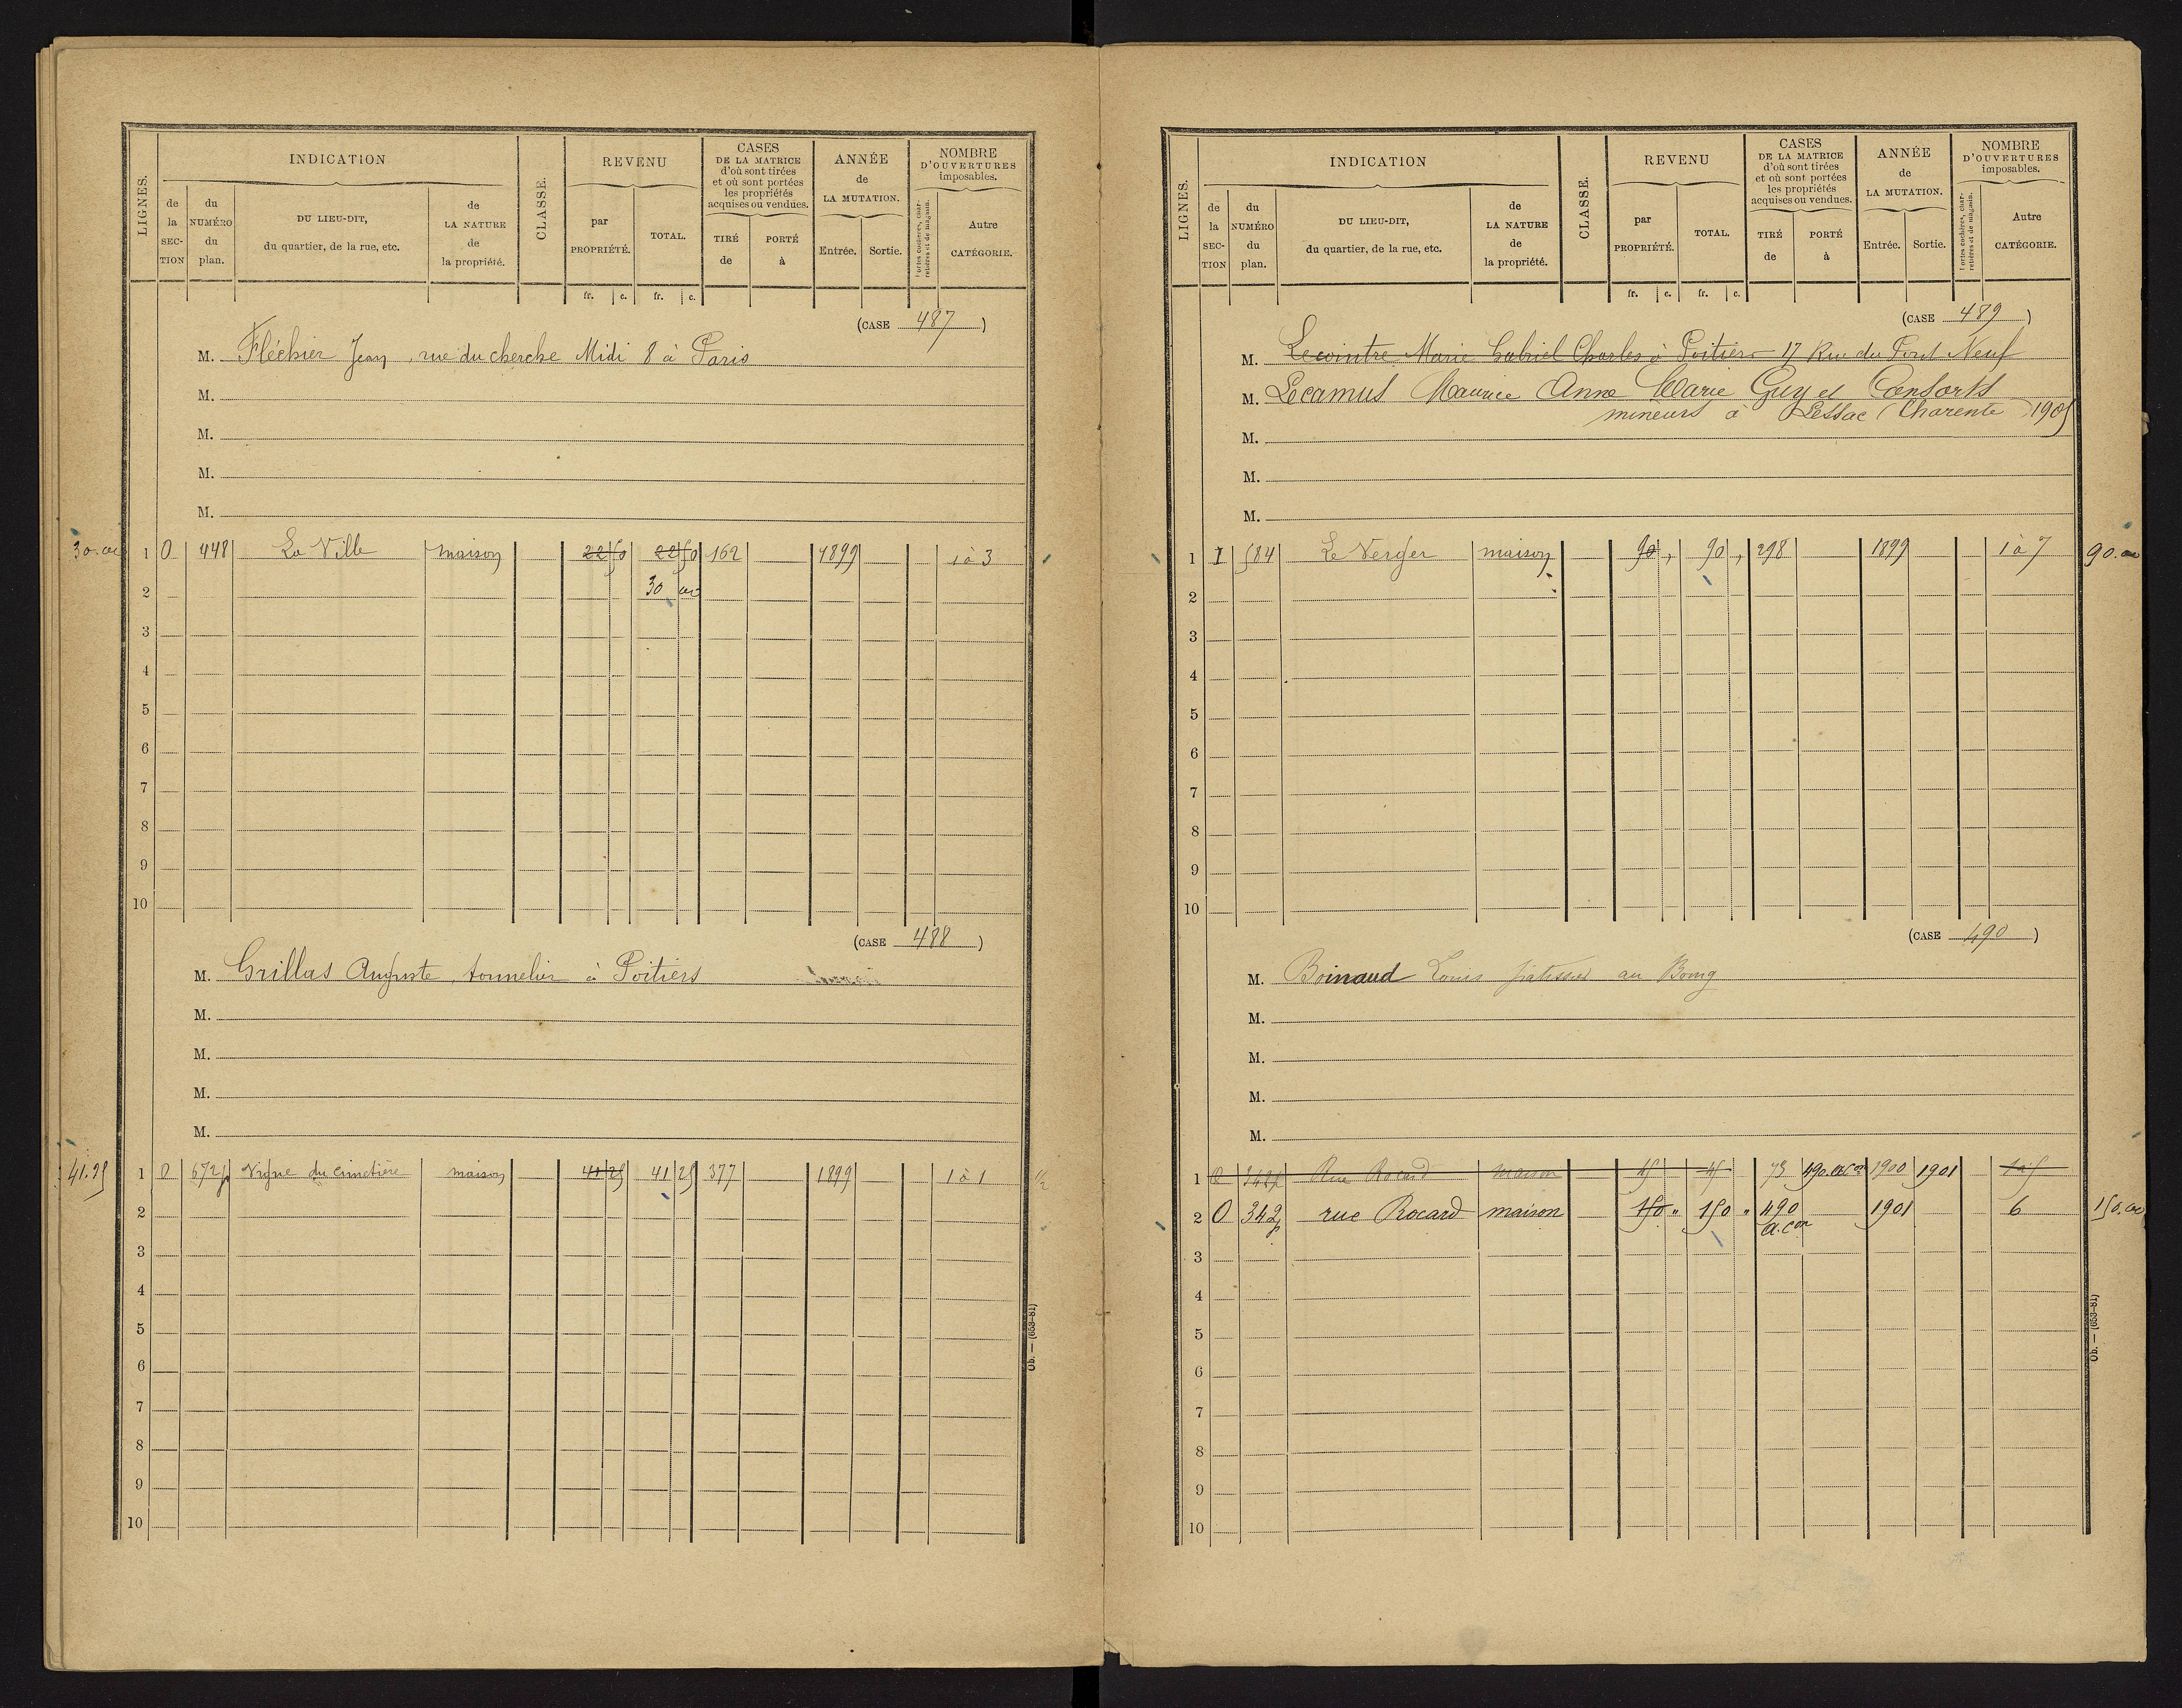 LIGNES.
INDICATION
CLASSE.
REVENU
CASES
DE LA MATRICE
d'où sont tirées
et où sont portées
les propriétés
acquises ou vendues.
ANNÉE
de
LA MUTATION.
NOMBRE
D'OUVERTURES
imposables.
de la SEC-TION
du NUMÉRO du plan.
DU LIEU-DIT,
du quartier, de la rue, etc.
de LA NATURE de la propriété.
par PROPRIÉTÉ.
TOTAL.
TIRÉ de
PORTÉ à
Entrée.
Sortie.
Portes cochères, charretières et de magasin.
Autre CATÉGORIE.
fr. c. fr. c.
(CASE 487)
M. Fléchier Jean, rue du cherche Midi 8 à Paris
M.
M.
M.
M.
30.00 1 O 448 La Ville maison 22 50 22 50 162 1899 1 à 3
2 30 00
3
4
5
6
7
8
9
10
(CASE 488)
M. Grillas Auguste, tonnelier à Poitiers
M.
M.
M.
M.
41.25 1 O 672p Vigne du Cimetière maison 41 25 41 25 377 1899 1 à 1 1/2
2
3
4
5
6
7
8
9
10
Ob. — (653-81)
LIGNES.
INDICATION
CLASSE.
REVENU
CASES
DE LA MATRICE
d'où sont tirées
et où sont portées
les propriétés
acquises ou vendues.
ANNÉE
de
LA MUTATION.
NOMBRE
D'OUVERTURES
imposables.
de la SEC-TION
du NUMÉRO du plan.
DU LIEU-DIT,
du quartier, de la rue, etc.
de LA NATURE de la propriété.
par PROPRIÉTÉ.
TOTAL.
TIRÉ de
PORTÉ à
Entrée.
Sortie.
Portes cochères, charretières et de magasin.
Autre CATÉGORIE.
fr. c. fr. c.
(CASE 489)
M. Lecointre Marie Gabriel Charles à Poitiers 17 Rue du Pont Neuf
M. Lecamus Maurice Anne Marie Guy et Consorts
mineurs à Lessac (Charente) 1905
M.
M.
M.
1 I 584 Le Verger maison 90 , 90 , 298 1899 1 à 7 90.00
2
3
4
5
6
7
8
9
10
(CASE 490)
M. Boinaud Louis patissier au Bourg
M.
M.
M.
M.
1 O 342p Rue Rocard maison 45 45 73 490 1900 1901 1 à 5
2 O 342p rue Rocard maison 150 " 150 " 490 a.con 1901 6 150.00
3
4
5
6
7
8
9
10
Ob. — (653-81)